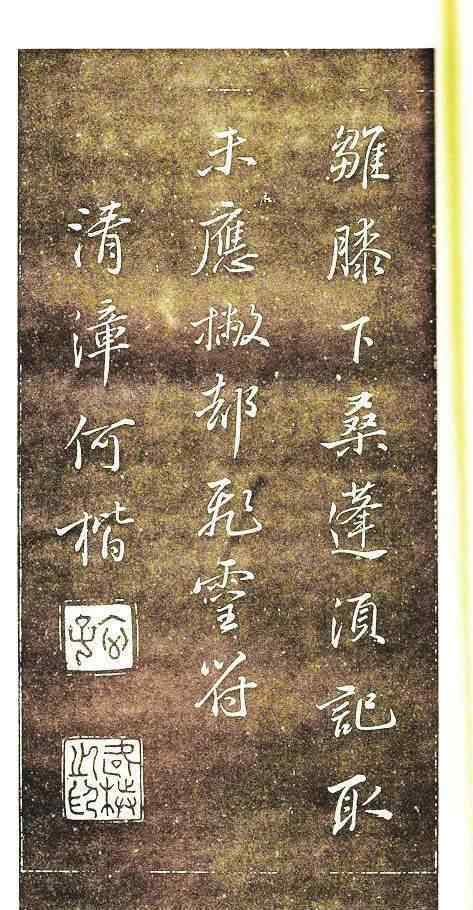 雛膝下桑蓬須記取
未應撇却飛霊符
清漳何楷